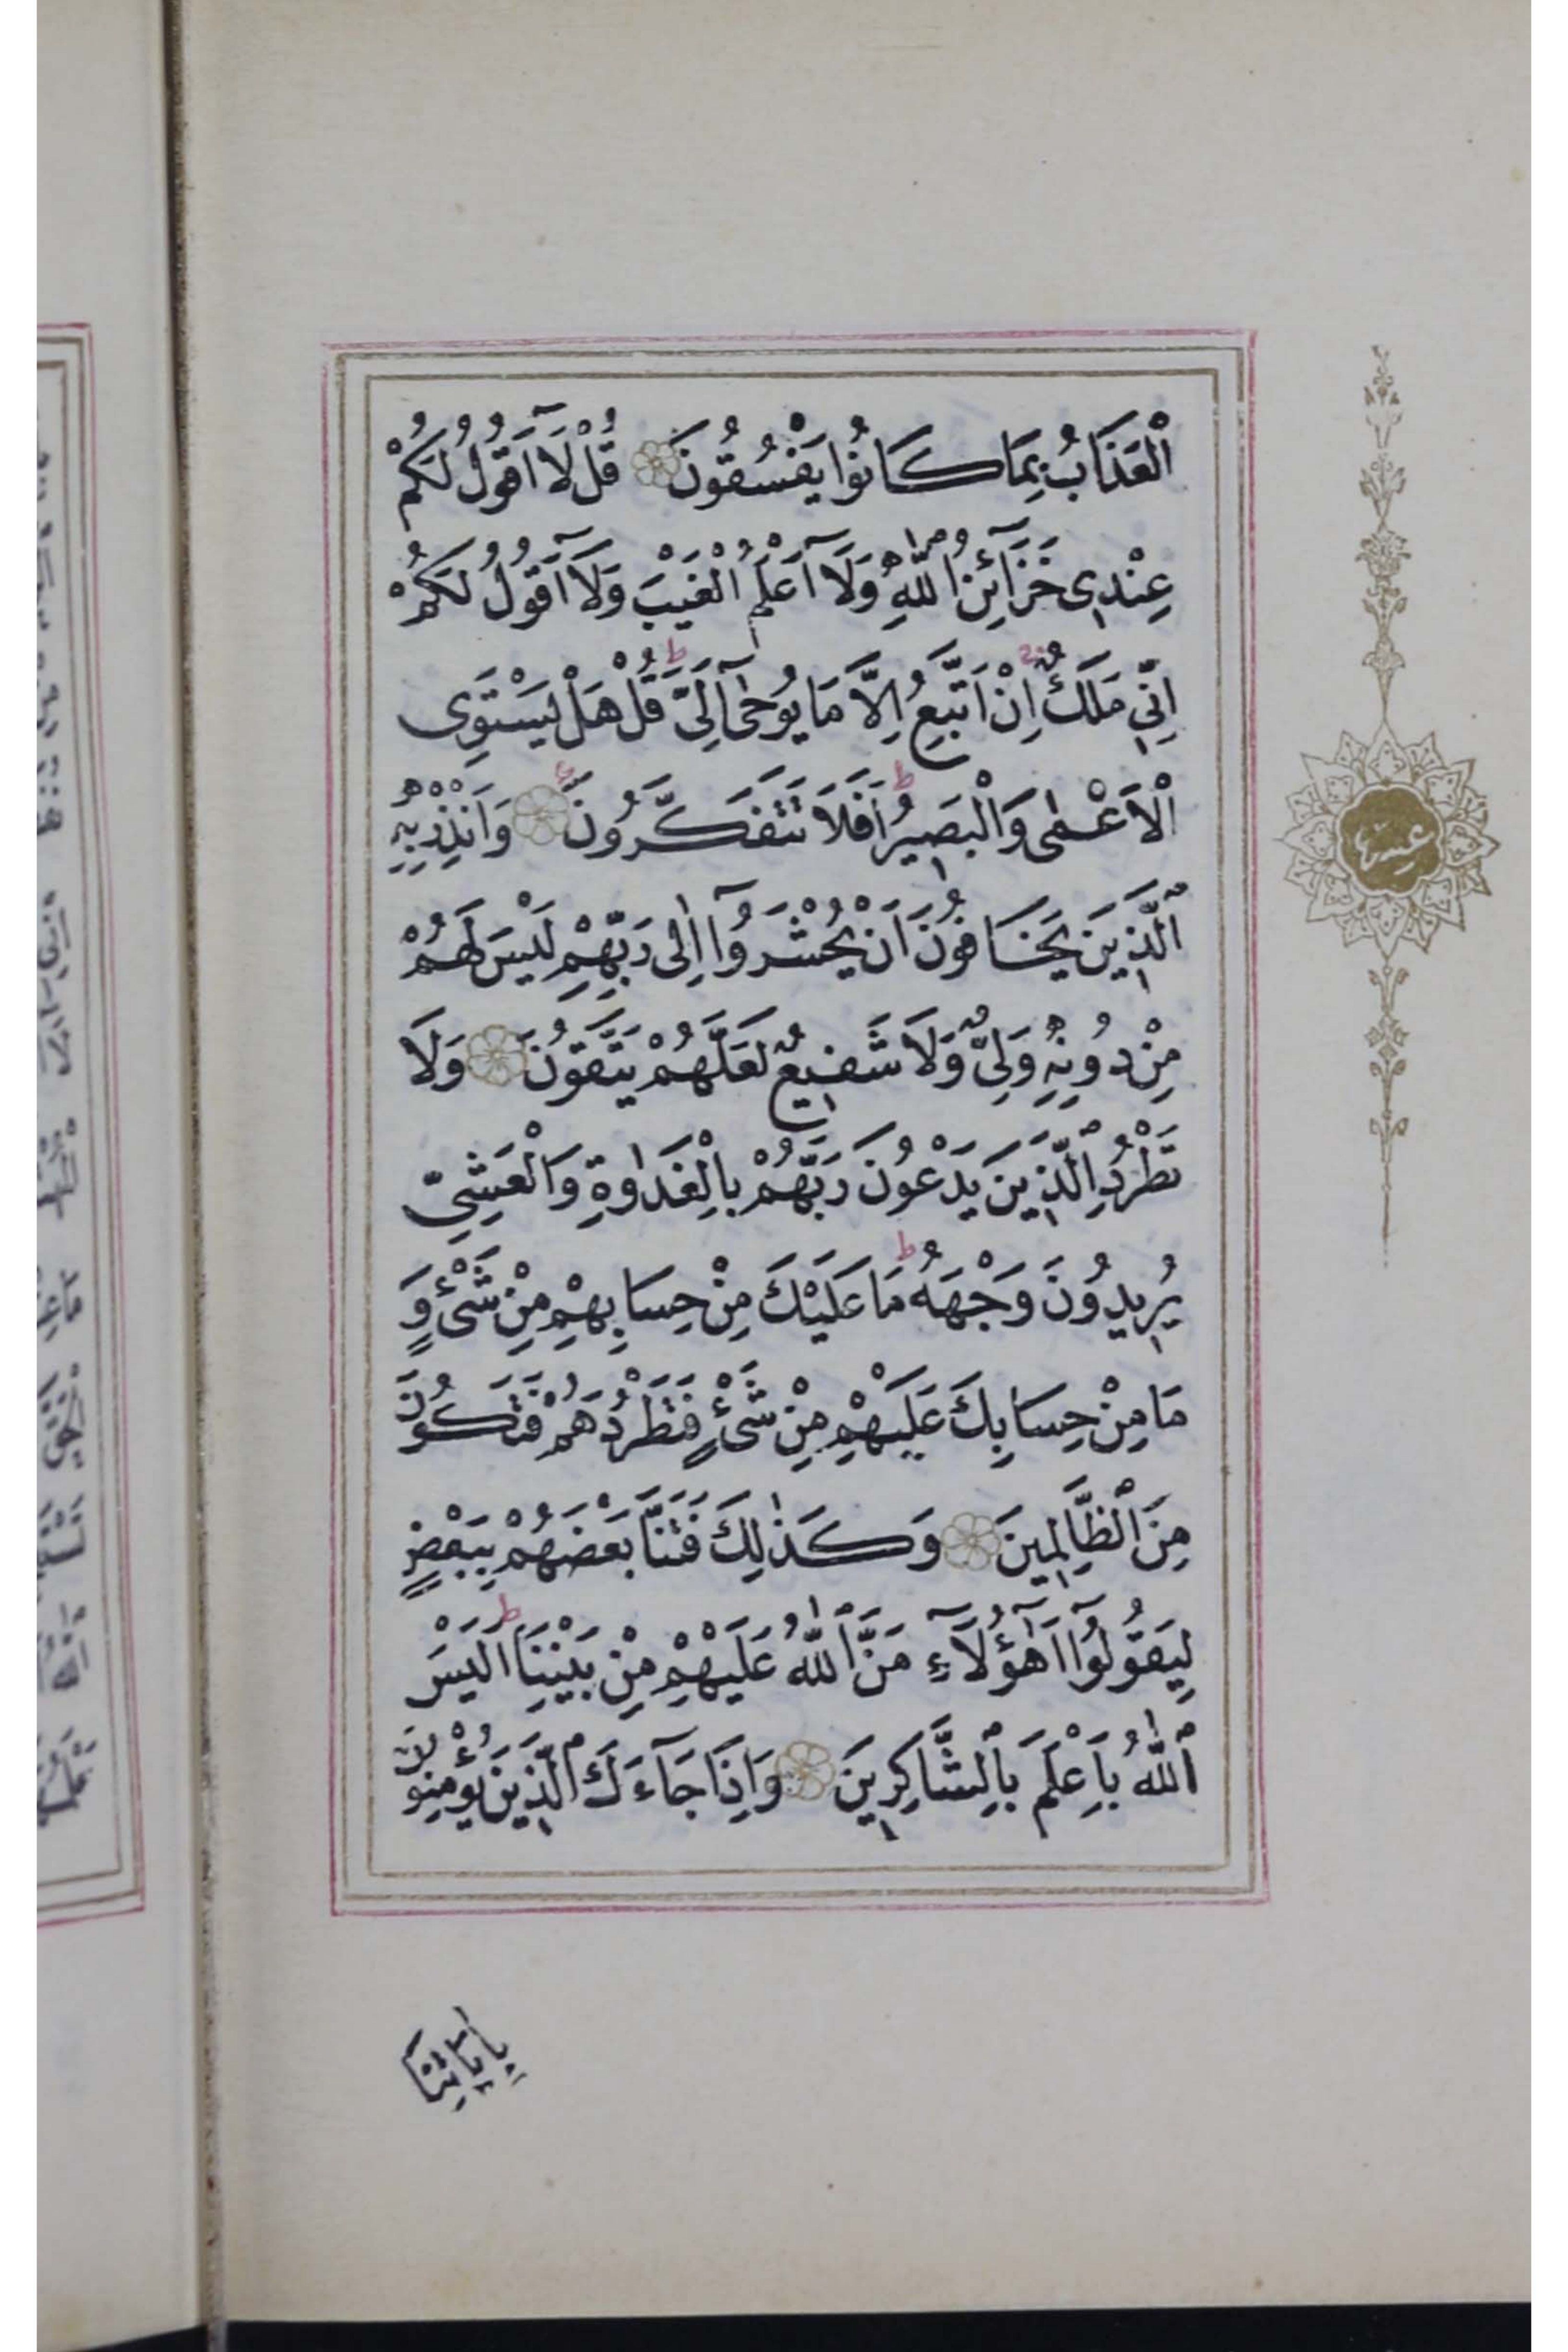 ٱلْعَذَابُ بِمَا كَانُوا يَفْسُقُونَ قُلْ لَآ اَقُولُ لَكُمْ
عِنْدِى خَزَآئِنُ ٱللّٰهِ وَلَآ اَعْلَمُ ٱلْغَيْبَ وَلَآ اَقُولُ لَكُمْ
اِنِّي مَلَكٌ اِنْ اَتَّبِعُ اِلَّا مَا يُوحٰٓى اِلَيَّ ط قُلْ هَلْ يَسْتَوِى
ٱلْاَعْمٰى وَٱلْبَصِيرُ ط اَفَلَا تَتَفَكَّرُونَ ع وَاَنْذِرْ بِهِ
ٱلَّذِينَ يَخَافُونَ اَنْ يُحْشَرُوٓا اِلٰى رَبِّهِمْ لَيْسَ لَهُمْ
مِنْ دُونِهِ وَلِىٌّ وَلَا شَفِيعٌ لَعَلَّهُمْ يَتَّقُونَ وَلَا
تَطْرُدِ ٱلَّذِينَ يَدْعُونَ رَبَّهُمْ بِالْغَدٰوةِ وَالْعَشِيِّ
يُرِيدُونَ وَجْهَهُ ط مَا عَلَيْكَ مِنْ حِسَابِهِمْ مِنْ شَىْءٍ وَ
مَا مِنْ حِسَابِكَ عَلَيْهِمْ مِنْ شَىْءٍ فَتَطْرُدَهُمْ فَتَكُونَ
مِنَ ٱلظَّالِمِينَ وَكَذٰلِكَ فَتَنَّا بَعْضَهُمْ بِبَعْضٍ
لِيَقُولُوٓا اَهٰٓؤُلَآءِ مَنَّ ٱللّٰهُ عَلَيْهِمْ مِنْ بَيْنِنَا ط اَلَيْسَ
ٱللّٰهُ بِاَعْلَمَ بِٱلشَّاكِرِينَ وَاِذَا جَآءَكَ ٱلَّذِينَ يُؤْمِنُونَ
بِاٰيَاتِنَا
عشر